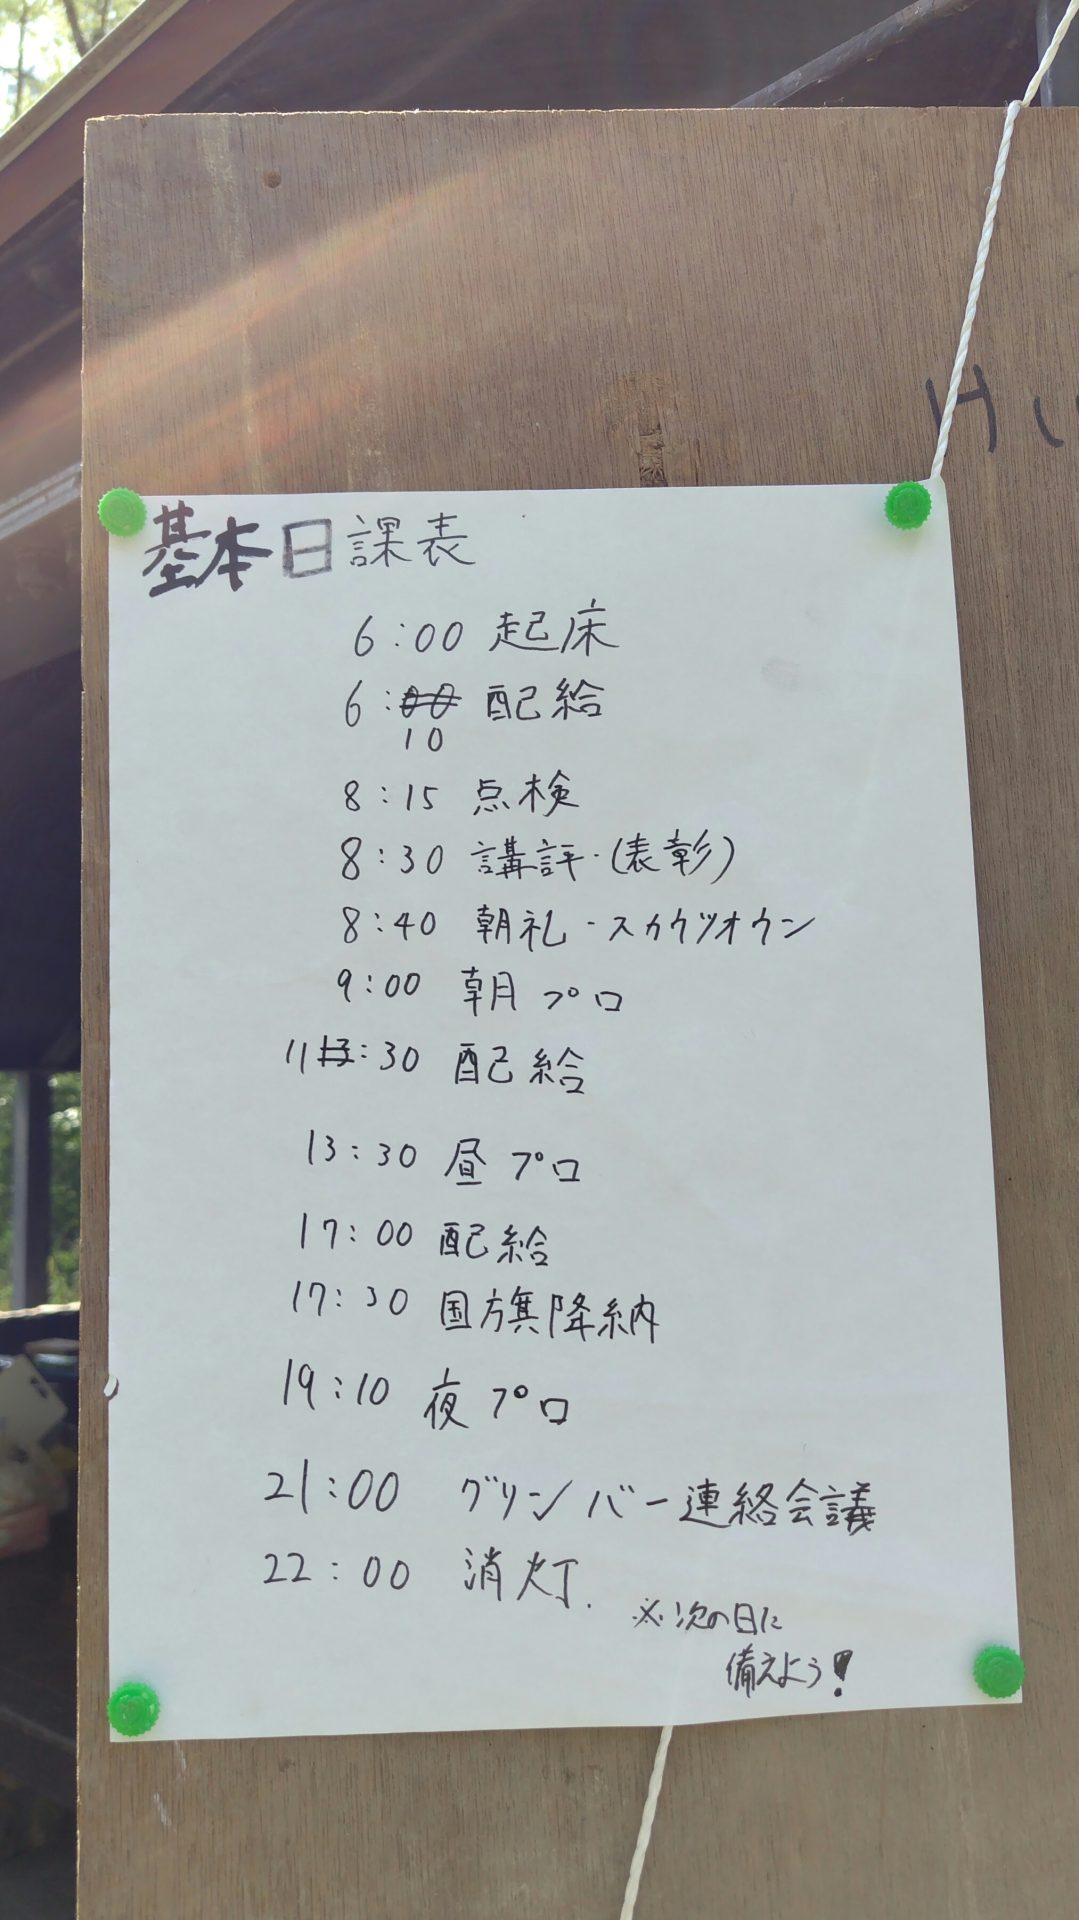 基本日課表
6:00 起床
6:10 配給
8:15 点検
8:30 講評・(表彰)
8:40 朝礼・スカウツオウン
9:00 朝プロ
11:30 配給
13:30 昼プロ
17:00 配給
17:30 国旗降納
19:10 夜プロ
21:00 グリンバー連絡会議
22:00 消灯.
※次の日に
備えよう!